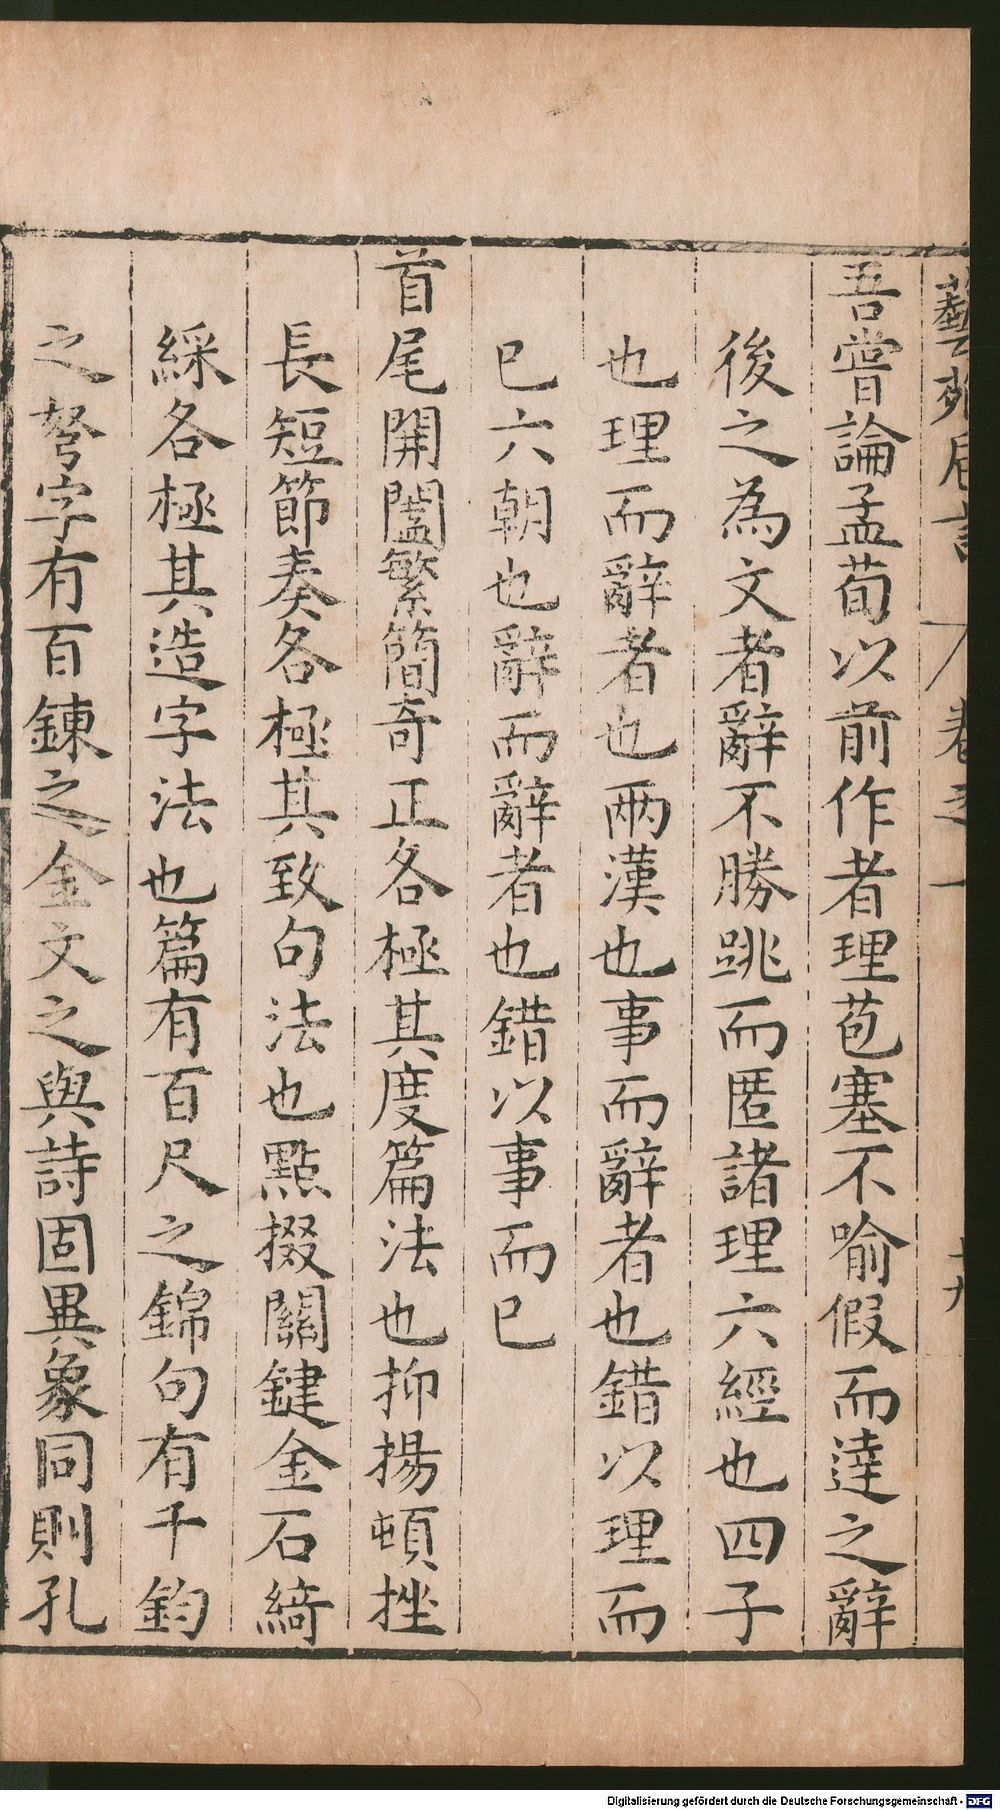 藝苑卮言 卷之一 十九
吾嘗論孟荀以前作者理苞塞不喻假而達之辭
後之為文者辭不勝跳而匿諸理六經也四子
也理而辭者也兩漢也事而辭者也錯以理而
已六朝也辭而辭者也錯以事而已
首尾開闔繁簡奇正各極其度篇法也抑揚頓挫
長短節奏各極其致句法也點掇關鍵金石綺
綵各極其造字法也篇有百尺之錦句有千鈞
之弩字有百鍊之金文之與詩固異象同則孔
Digitalisierung gefördert durch die Deutsche Forschungsgemeinschaft - DFG